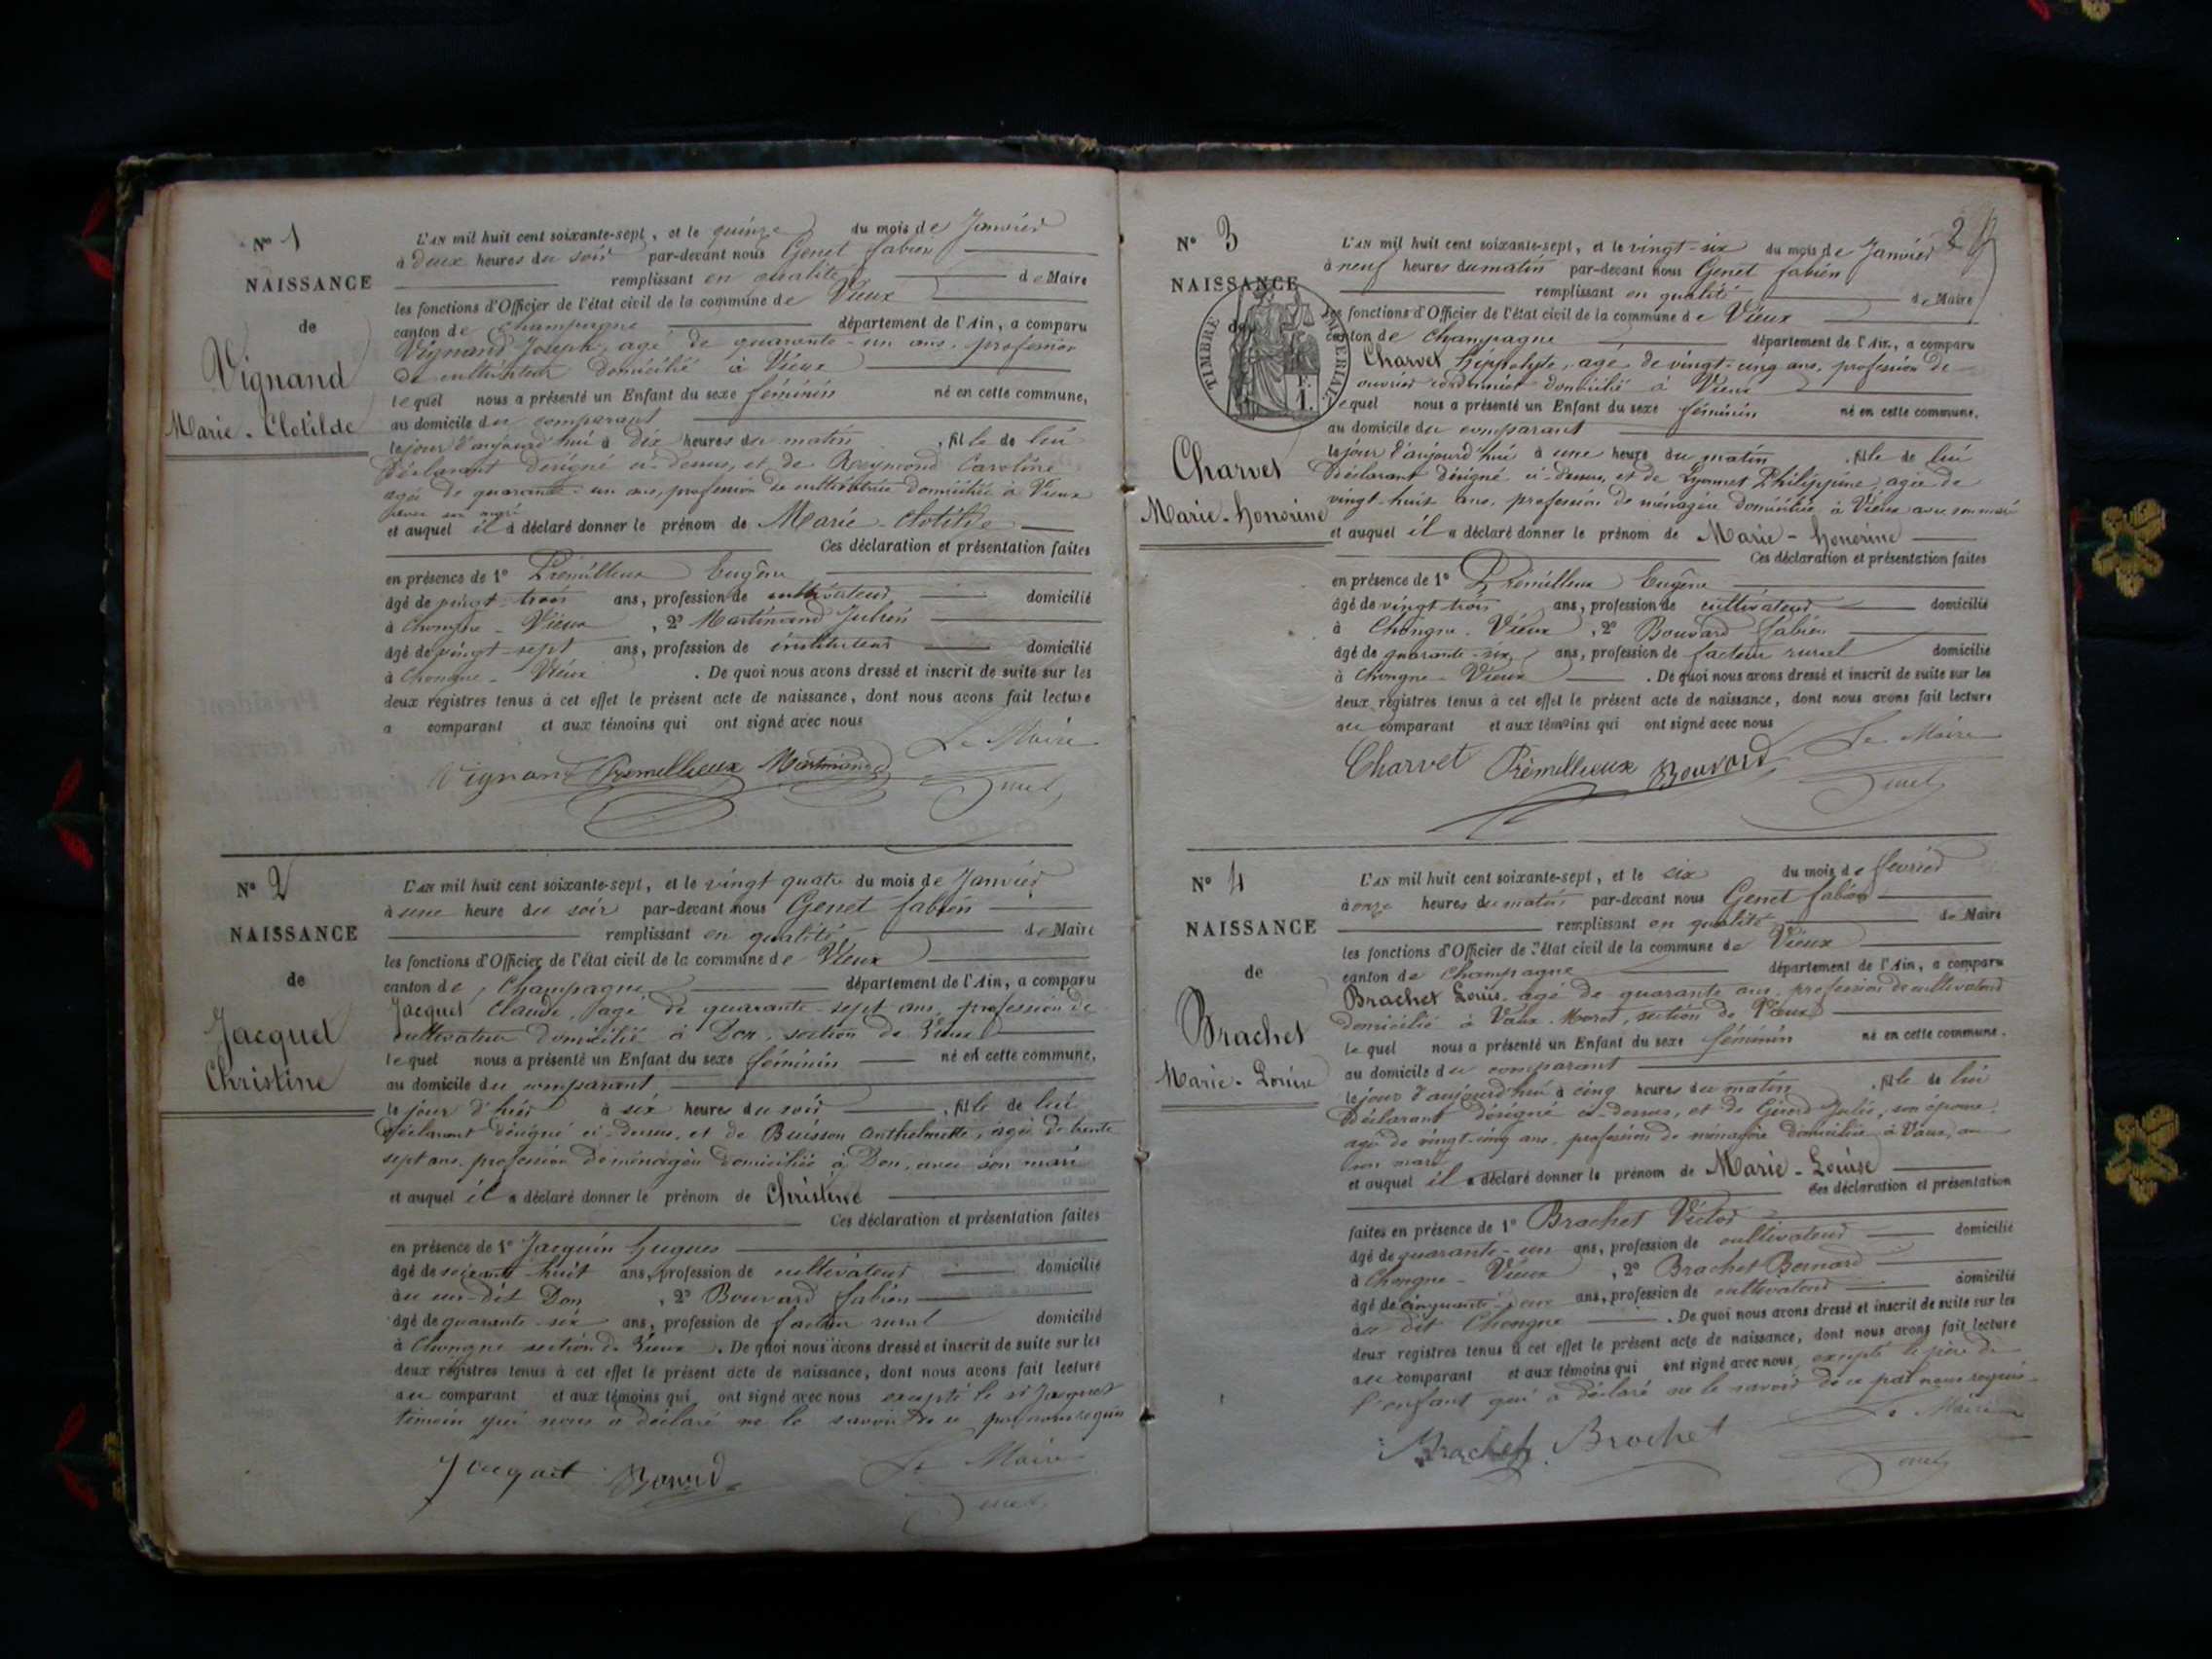 N° 1
NAISSANCE
de
Vignand
Marie-Clotilde
L'AN mil huit cent soixante-sept, et le quinze du mois de Janvier
à deux heures du soir par-devant nous Genet fabien
remplissant en qualité de Maire
les fonctions d'Officier de l'état civil de la commune de Vieux
canton de Champagne département de l'Ain, a comparu
Vignand Joseph, agé de quarante-un ans, profession
de cultivateur domicilié à Vieux
lequel nous a présenté un Enfant du sexe féminin né en cette commune,
au domicile du comparant
le jour d'aujourd'hui à dix heures du matin, fille de lui
Déclarant désigné ci-dessus, et de Reymond Caroline
agée de quarante-un ans, profession de cultivatrice domiciliée à Vieux
avec son mari
et auquel il a déclaré donner le prénom de Marie-Clotilde
Ces déclaration et présentation faites
en présence de 1° Prémillieux Eugène
âgé de vingt-trois ans, profession de cultivateur domicilié
à Chongne-Vieux, 2° Martinand Julien
âgé de vingt-sept ans, profession de instituteur domicilié
à Chongne-Vieux. De quoi nous avons dressé et inscrit de suite sur les
deux registres tenus à cet effet le présent acte de naissance, dont nous avons fait lecture
a comparant et aux témoins qui ont signé avec nous
Le Maire
Vignand Prémillieux Martinand Genet
N° 2
NAISSANCE
de
Jacquet
Christine
L'AN mil huit cent soixante-sept, et le vingt quatre du mois de Janvier
à une heure du soir par-devant nous Genet fabien
remplissant en qualité de Maire
les fonctions d'Officier de l'état civil de la commune de Vieux
canton de Champagne département de l'Ain, a comparu
Jacquet Claude, agé de quarante-sept ans, profession de
cultivateur domicilié à Don, section de Vieux
lequel nous a présenté un Enfant du sexe féminin né en cette commune,
au domicile du comparant
le jour d'hier à six heures du soir, fille de lui
Déclarant désigné ci-dessus, et de Buisson Anthelmette, agée de trente
sept ans, profession de ménagère domiciliée à Don, avec son mari
et auquel il a déclaré donner le prénom de Christine
Ces déclaration et présentation faites
en présence de 1° Jacquin hugues
âgé de soixante-huit ans, profession de cultivateur domicilié
au lieu-dit Don, 2° Bouvard fabien
âgé de quarante-six ans, profession de facteur rural domicilié
à Chongne section de Vieux. De quoi nous avons dressé et inscrit de suite sur les
deux registres tenus à cet effet le présent acte de naissance, dont nous avons fait lecture
au comparant et aux témoins qui ont signé avec nous excepté le sr
témoin qui nous a déclaré ne le savoir de ce par nous requis
Le Maire
Bouvard Genet
N° 3
NAISSANCE
de
TIMBRE IMPERIAL
Charvet
Marie-honorine
2
L'AN mil huit cent soixante-sept, et le vingt-six du mois de Janvier
à neuf heures du matin par-devant nous Genet fabien
remplissant en qualité de Maire
les fonctions d'Officier de l'état civil de la commune de Vieux
canton de Champagne département de l'Ain, a comparu
Charvet hippolyte, agé de vingt-cinq ans, profession de
ouvrier cordonnier domicilié à Vieux
lequel nous a présenté un Enfant du sexe féminin né en cette commune,
au domicile du comparant
le jour d'aujourd'hui à une heure du matin, fille de lui
Déclarant désigné ci-dessus, et de Lyonnet Philippine agée de
vingt-huit ans, profession de ménagère domiciliée à Vieux avec son mari
et auquel il a déclaré donner le prénom de Marie-honorine
Ces déclaration et présentation faites
en présence de 1° Prémillieux Eugène
âgé de vingt trois ans, profession de cultivateur domicilié
à Chongne-Vieux, 2° Bouvard fabien
âgé de quarante-six ans, profession de facteur rural domicilié
à Chongne-Vieux. De quoi nous avons dressé et inscrit de suite sur les
deux registres tenus à cet effet le présent acte de naissance, dont nous avons fait lecture
au comparant et aux témoins qui ont signé avec nous
Le Maire
Charvet Prémillieux Bouvard Genet
N° 4
NAISSANCE
de
Brachet
Marie-Louise
L'AN mil huit cent soixante-sept, et le six du mois de février
à onze heures du matin par-devant nous Genet fabien
remplissant en qualité de Maire
les fonctions d'Officier de l'état civil de la commune de Vieux
canton de Champagne département de l'Ain, a comparu
Brachet Louis, agé de quarante ans, profession de cultivateur
domicilié à Vaux-Moret, section de Vieux
lequel nous a présenté un Enfant du sexe féminin né en cette commune,
au domicile du comparant
le jour d'aujourd'hui à cinq heures du matin, fille de lui
Déclarant désigné ci-dessus, et de Julie, son épouse,
agée de vingt-cinq ans, profession de ménagère domiciliée à Vaux, avec
son mari
et auquel il a déclaré donner le prénom de Marie-Louise
Ces déclaration et présentation
faites en présence de 1° Brachet Victor
âgé de quarante-un ans, profession de cultivateur domicilié
à Chongne-Vieux, 2° Brachet Bernard
âgé de cinquante-deux ans, profession de cultivateur domicilié
au dit Chongne. De quoi nous avons dressé et inscrit de suite sur les
deux registres tenus à cet effet le présent acte de naissance, dont nous avons fait lecture
au comparant et aux témoins qui ont signé avec nous, excepté le père de
l'enfant qui a déclaré ne le savoir de ce par nous requis
Le Maire
Brachet Brachet Genet